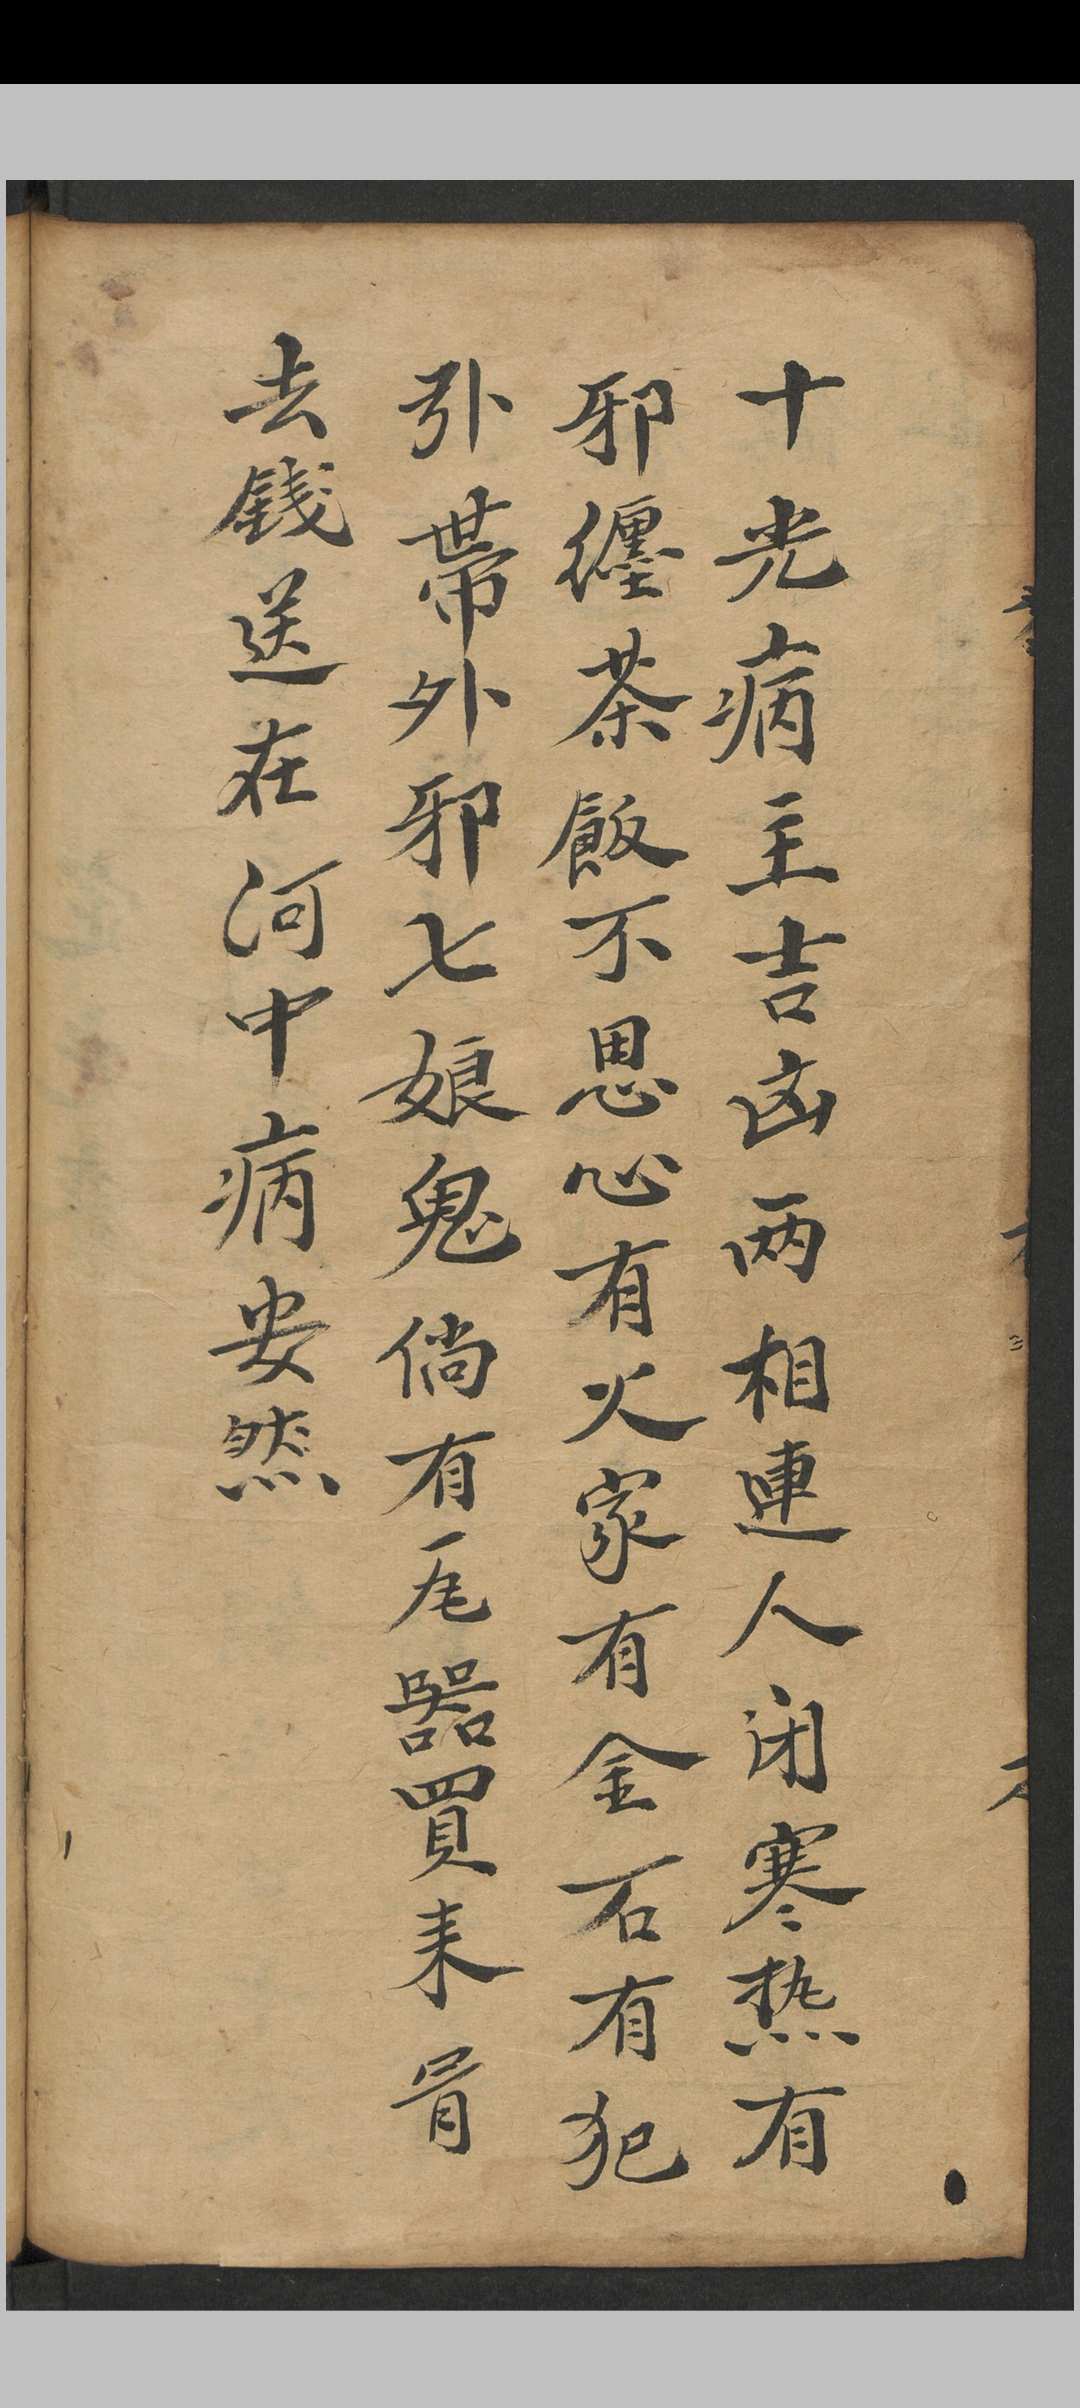 十光病主吉凶两相連人闭寒热有
邪纏茶飯不思心有火家有金石有犯
引帶外邪七娘鬼倘有瓦器買来
去錢送在河中病安然